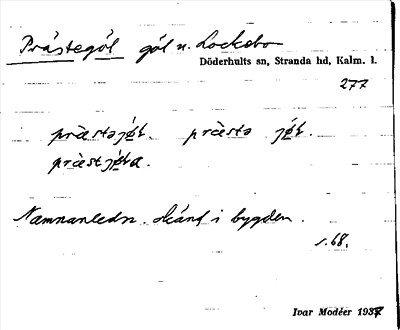 Prästegöl göl n. Lockebo
Döderhults sn, Stranda hd, Kalm. l.
277
Namnanledn. okänd i bygden.
s. 68.
Ivar Modéer 1937